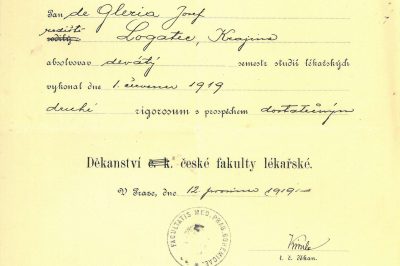 Pan de Gleria Josef
rediště
rodilý
Logatec, Krajina
absolvovav devátý semestr studií lékařských
vykonal dne 1. července 1919
druhé rigorosum s prospěchem dostatečným
Děkanství c. k. české fakulty lékařské.
V Praze, dne 12 prosince 1919
FACULTATIS MED. PRAG. BOHEMICAE
t. č. děkan.